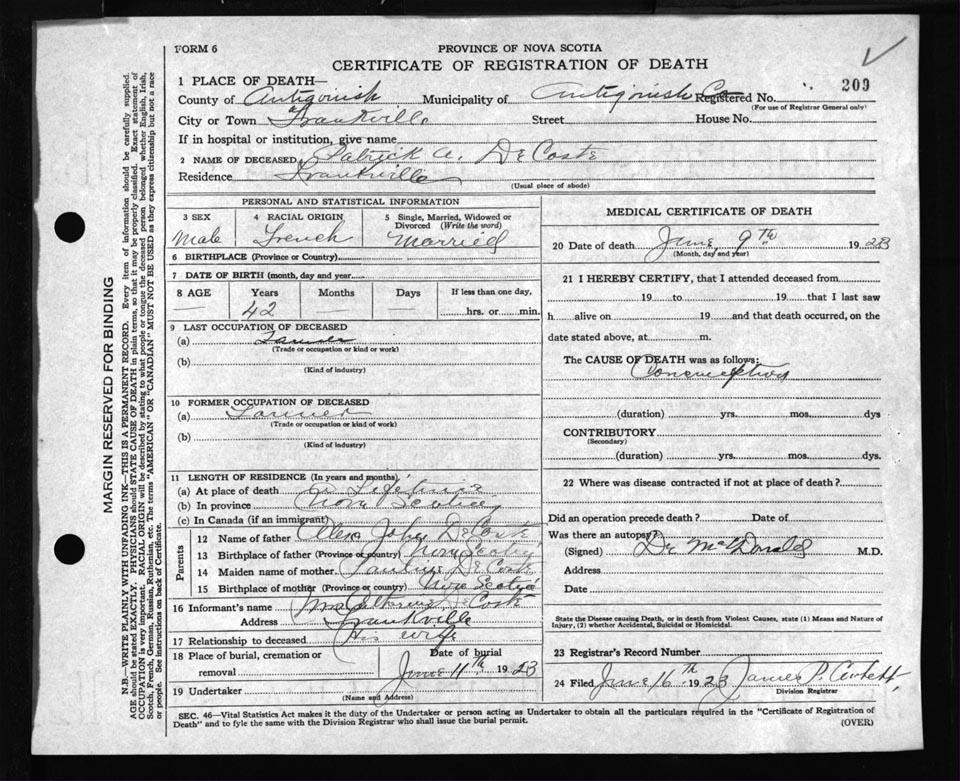 FORM 6
PROVINCE OF NOVA SCOTIA
CERTIFICATE OF REGISTRATION OF DEATH
209
1 PLACE OF DEATH—
County of Antigonish Municipality of Antigonish Co Registered No.
(For use of Registrar General only)
City or Town Frankville Street House No.
If in hospital or institution, give name
2 NAME OF DECEASED Patrick A. DeCoste
Residence Frankville
(Usual place of abode)
PERSONAL AND STATISTICAL INFORMATION
3 SEX 4 RACIAL ORIGIN 5 Single, Married, Widowed or
Divorced (Write the word)
Male French Married
6 BIRTHPLACE (Province or Country)
7 DATE OF BIRTH (month, day and year
8 AGE Years Months Days If less than one day,
42 hrs. or min.
9 LAST OCCUPATION OF DECEASED
(a) Farmer
(Trade or occupation or kind or work)
(b)
(Kind of industry)
10 FORMER OCCUPATION OF DECEASED
(a) Farmer
(Trade or occupation or kind of work)
(b)
(Kind of industry)
11 LENGTH OF RESIDENCE (In years and months)
(a) At place of death Life time
(b) In province Nova Scotia
(c) In Canada (if an immigrant)
Parents
12 Name of father John DeCoste
13 Birthplace of father (Province or country) Nova Scotia
14 Maiden name of mother DeCoste
15 Birthplace of mother (Province or country) Nova Scotia
16 Informant's name Mrs DeCoste
Address Frankville
17 Relationship to deceased His wife
18 Place of burial, cremation or Date of burial
removal June 11th 1923
19 Undertaker
(Name and Address)
MEDICAL CERTIFICATE OF DEATH
20 Date of death June, 9th 1923
(Month, day and year)
21 I HEREBY CERTIFY, that I attended deceased from
19 to 19 that I last saw
h alive on 19 and that death occurred, on the
date stated above, at m.
The CAUSE OF DEATH was as follows:
Consumption
(duration) yrs. mos. dys
CONTRIBUTORY
(Secondary)
(duration) yrs. mos. dys.
22 Where was disease contracted if not at place of death?
Did an operation precede death? Date of
Was there an autopsy?
(Signed) Dr McDonald M.D.
Address
Date
State the Disease causing Death, or in death from Violent Causes, state (1) Means and Nature of
Injury, (2) whether Accidental, Suicidal or Homicidal.
23 Registrar's Record Number
24 Filed June 16th 1923 James P.
Division Registrar
SEC. 46—Vital Statistics Act makes it the duty of the Undertaker or person acting as Undertaker to obtain all the particulars required in the "Certificate of Registration of
Death" and to fyle the same with the Division Registrar who shall issue the burial permit.
(OVER)
MARGIN RESERVED FOR BINDING
N.B.—WRITE PLAINLY WITH UNFADING INK—THIS IS A PERMANENT RECORD. Every item of information should be carefully supplied.
AGE should be stated EXACTLY. PHYSICIANS should STATE CAUSE OF DEATH in plain terms, so that it may be properly classified. Exact statement of
OCCUPATION is very important. RACIAL ORIGIN will be described by stating to what people or tongue the deceased person belonged whether English, Irish,
Scotch, French, German, Russian, Ruthenian, etc. The terms "AMERICAN" OR "CANADIAN" MUST NOT BE USED as they express citizenship but not a race
or people. See instructions on back of Certificate.